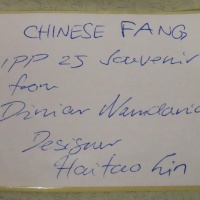 CHINESE FANG
IPP 25 Souvenir
from
Diniar Namdaria
Designer
Haitao Lin